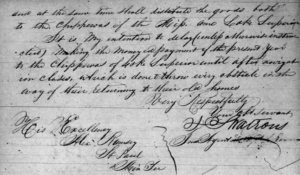 and at the same time shall distribute the goods both
to the Chippewas of the Miss. and Lake Superior
It is my intention to delay (unless otherwise instru-
cted) making the money payment of the present year
to the Chippewas of Lake Superior until after navigat-
ion closes, which is done to throw every obstacle in the
way of their returning to their old homes
Very Respectfully
Your Obt Servant,
J S Watrous
Ind Agent
His Excellency
Alex Ramsey
St Paul
Min Ter